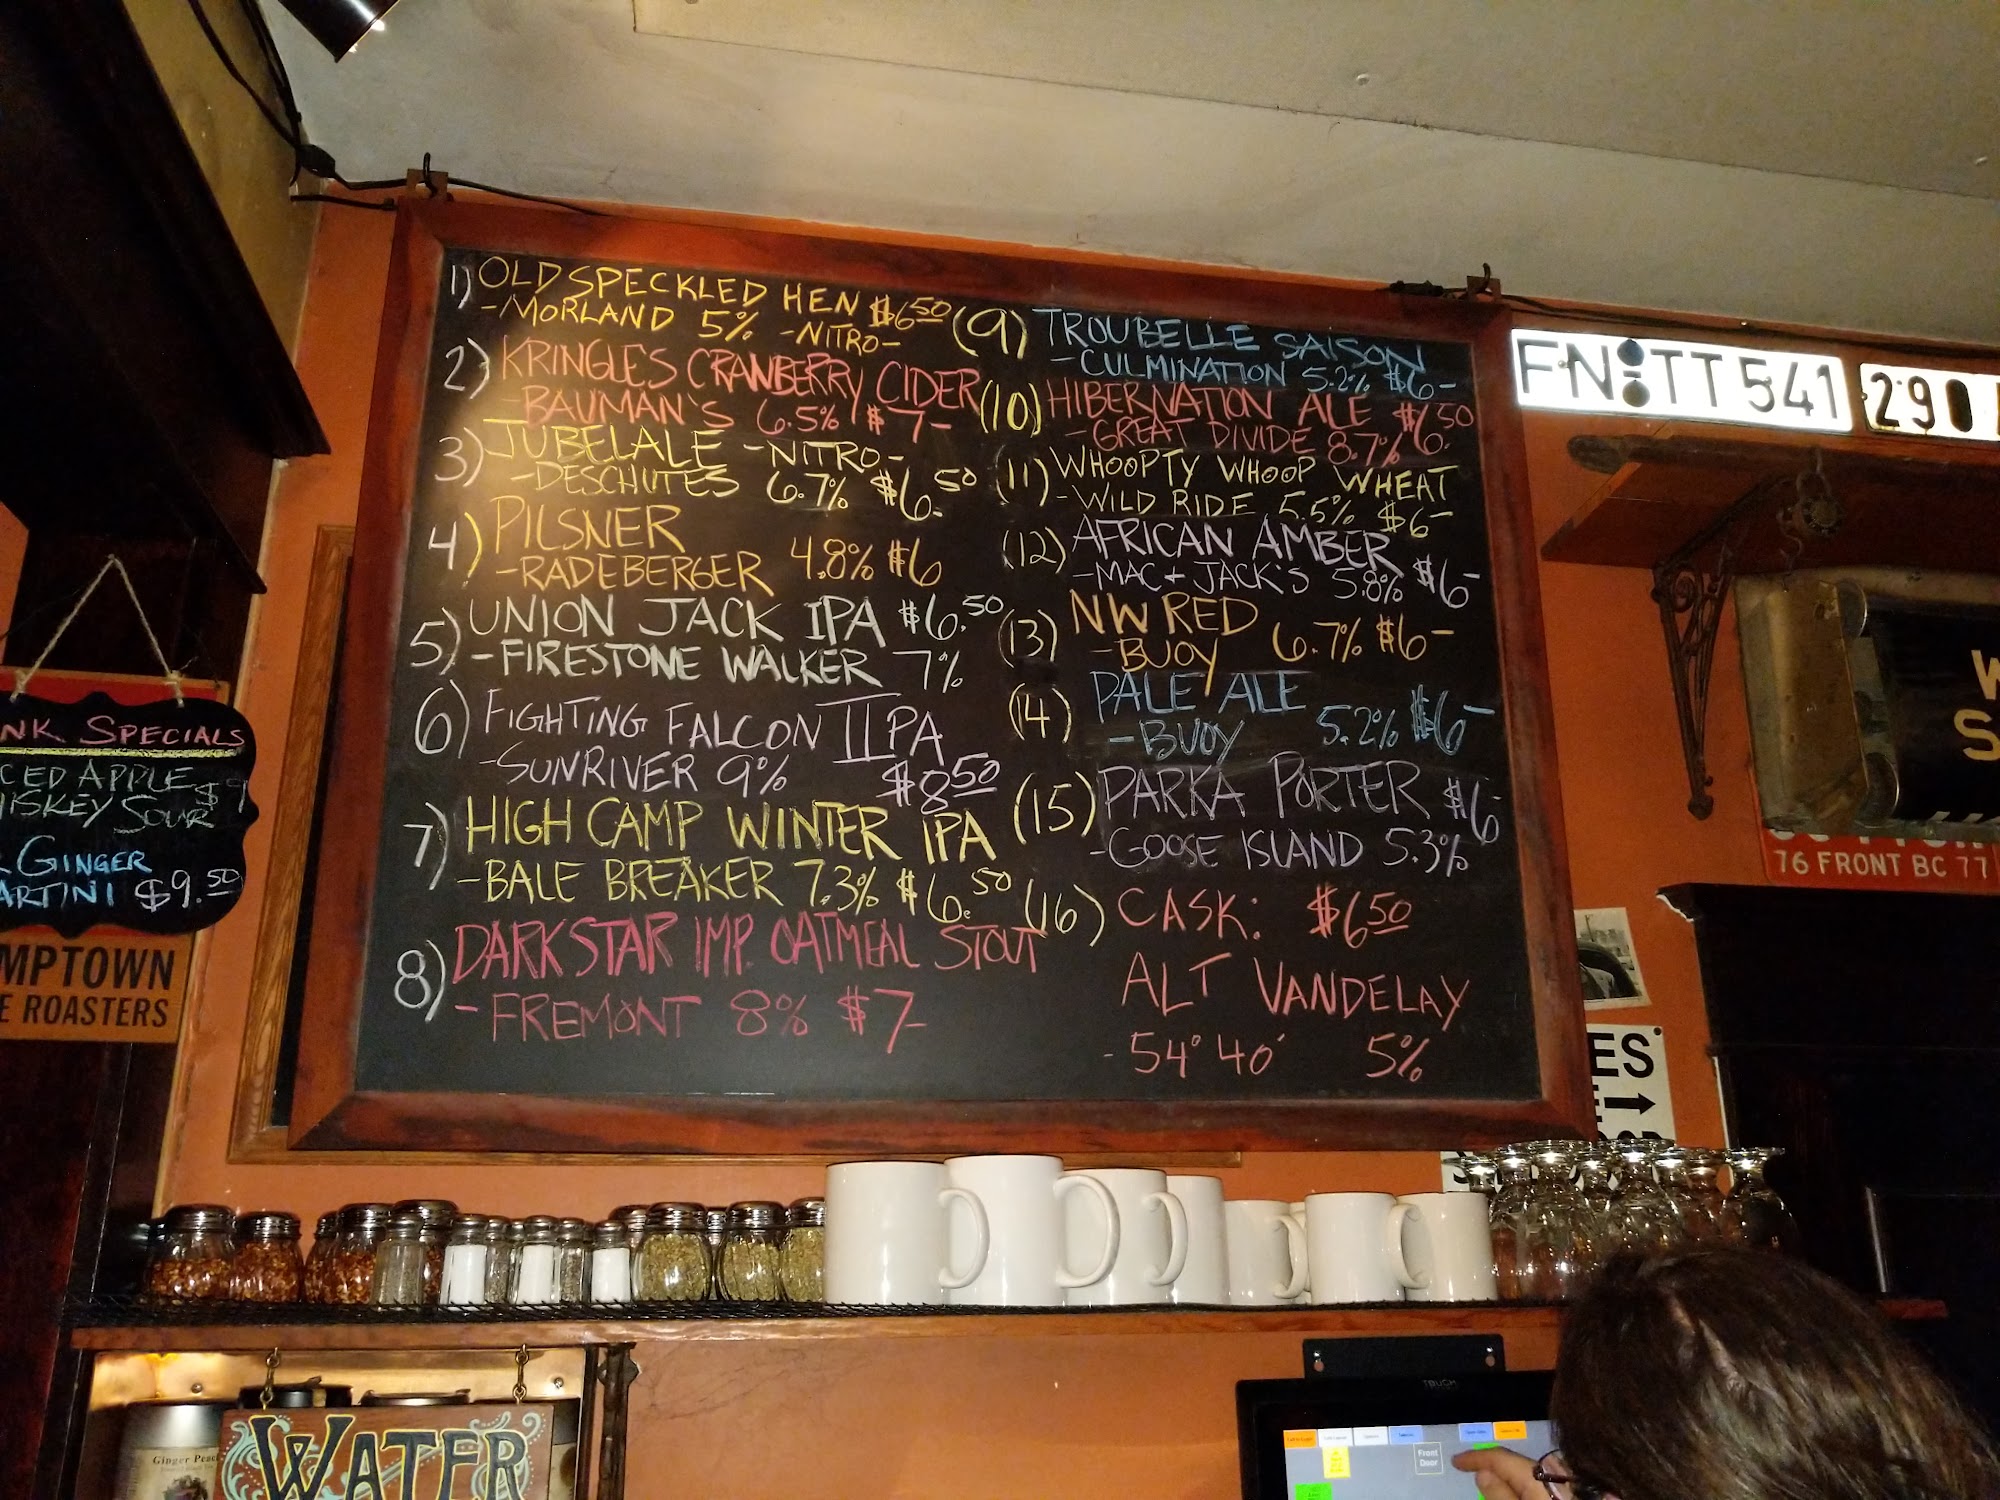 1) OLD SPECKLED HEN $6.50
-MORLAND 5% -NITRO-
2) KRINGLES CRANBERRY CIDER
-BAUMAN'S 6.5% $7-
3) JUBELALE -NITRO-
-DESCHUTES 6.7% $6.50
4) PILSNER
-RADEBERGER 4.8% $6
5) UNION JACK IPA $6.50
-FIRESTONE WALKER 7%
6) FIGHTING FALCON IIPA
-SUNRIVER 9% $8.50
7) HIGH CAMP WINTER IPA
-BALE BREAKER 7.3% $6.50
8) DARK STAR IMP. OATMEAL STOUT
-FREMONT 8% $7-
(9) TROUBELLE SAISON
-CULMINATION 5.2% $6-
(10) HIBERNATION ALE $6.50
-GREAT DIVIDE 8.7%
(11) WHOOPTY WHOOP WHEAT
-WILD RIDE 5.5% $6-
(12) AFRICAN AMBER
-MAC + JACK'S 5.8% $6-
(13) NW RED
-BUOY 6.7% $6-
(14) PALE ALE
-BUOY 5.2% $6-
(15) PARKA PORTER $6-
-GOOSE ISLAND 5.3%
(16) CASK: $6.50
ALT VANDELAY
-54° 40' 5%
NK SPECIALS
CED APPLE
HISKEY SOUR $9
GINGER
ARTINI $9.50
MPTOWN
E ROASTERS
FN TT 541
290
76 FRONT BC 77
W
S
ES
WATER
Ginger Peac
Front
Door